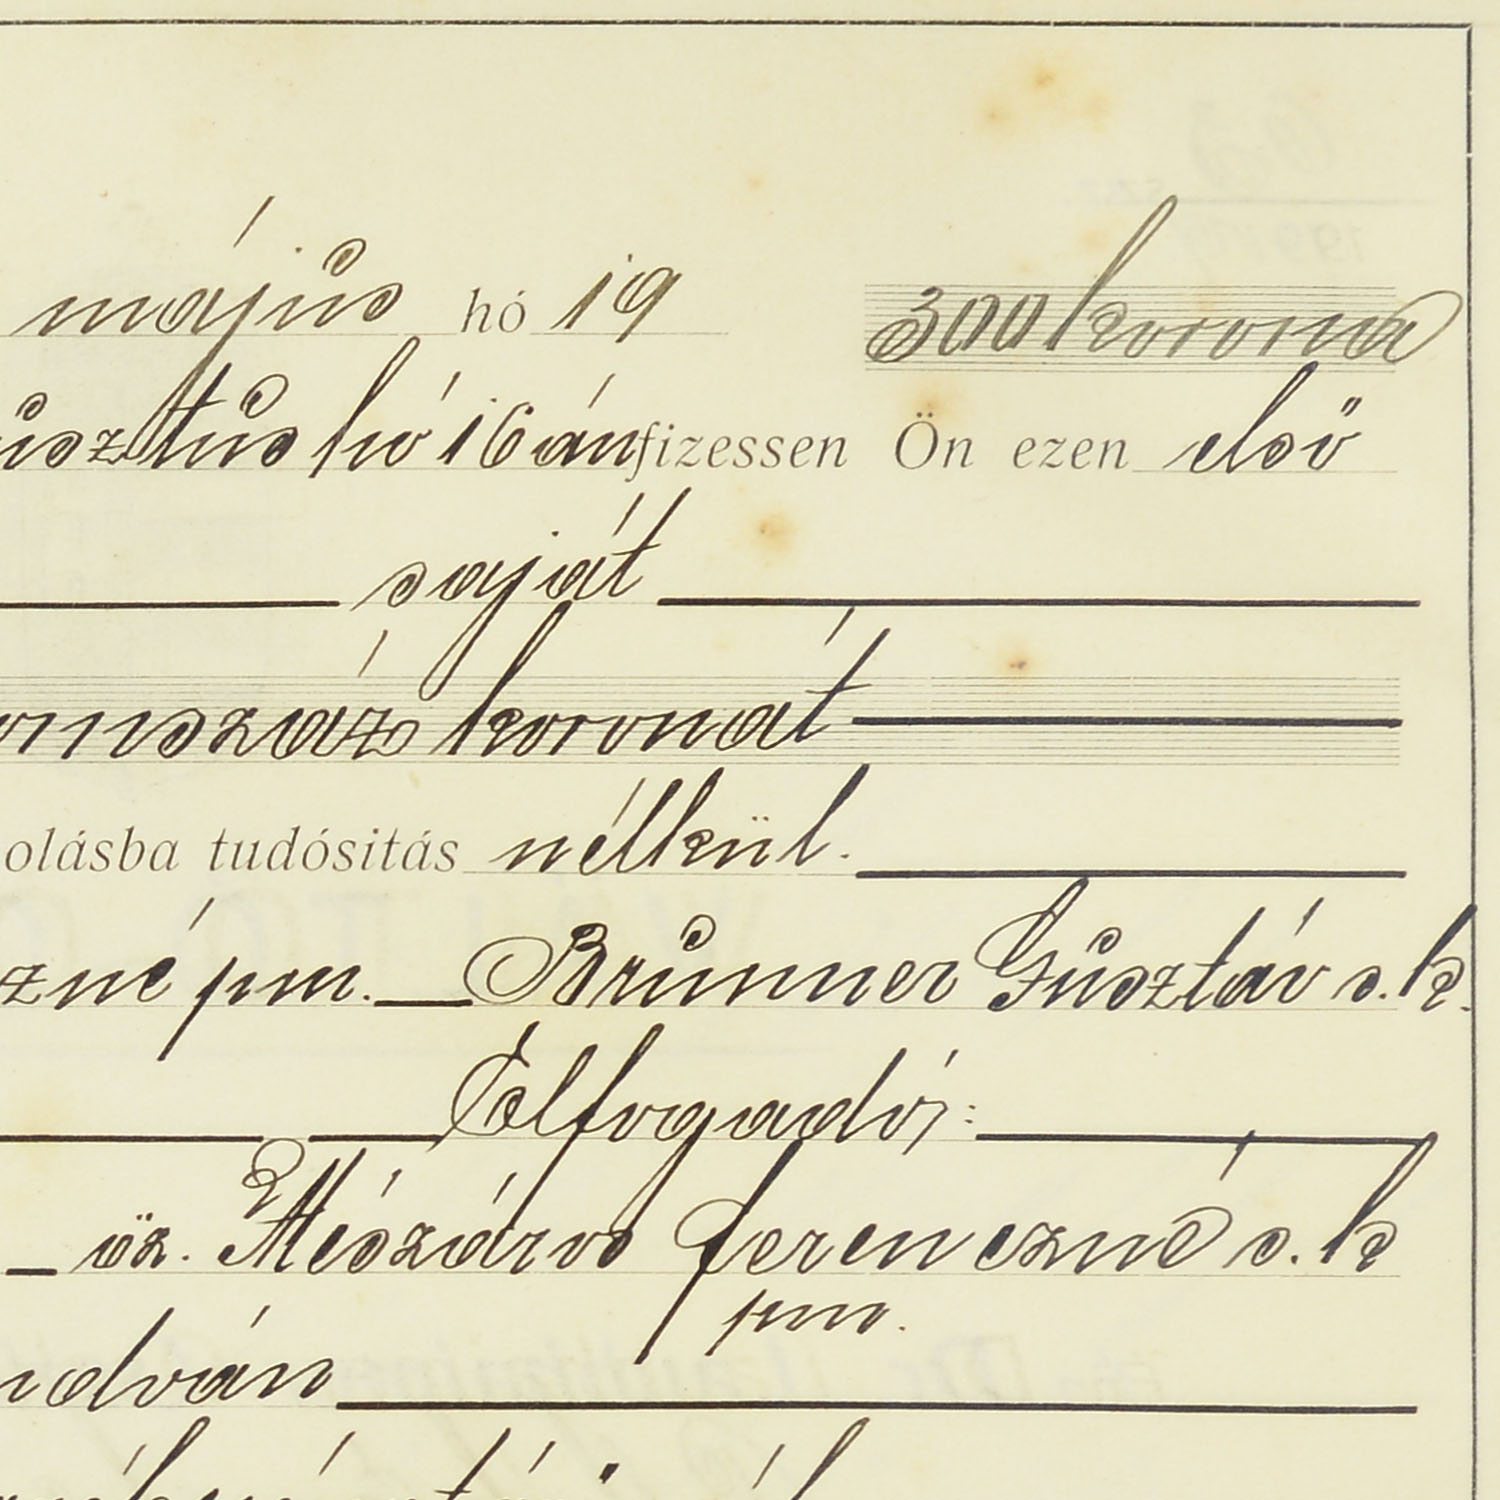 május hó 19 300 korona
usztus hó 16 án fizessen Ön ezen első
saját
omszáz koronát
olásba tudósitás nélkül.
zné pm. Brunner Gusztáv s. k.
Elfogadó;:
öz. Mészáros Ferenczné s. k
pm.